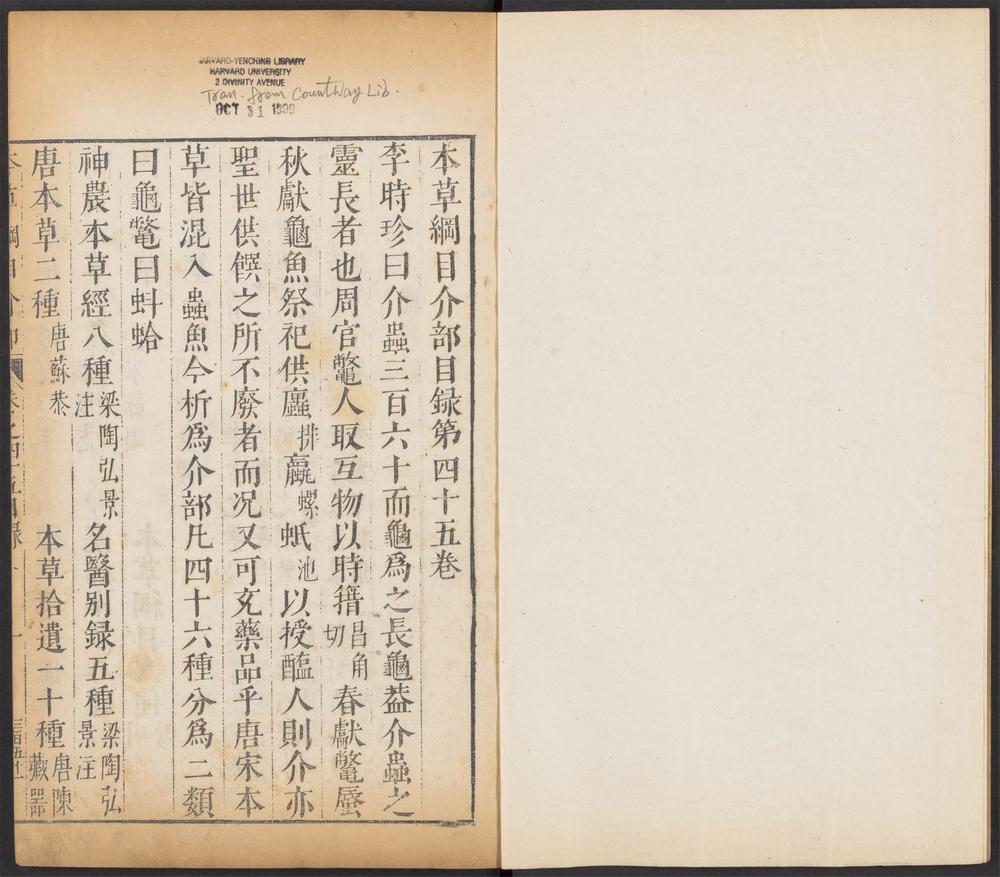 HARVARD-YENCHING LIBRARY
HARVARD UNIVERSITY
2 DIVINITY AVENUE
Tran. from Countway Lib.
OCT 31 1989
本草綱目介部目録第四十五巻
李時珍曰介蟲三百六十而龜爲之長龜葢介蟲之
靈長者也周官鼈人取互物以時籍昌角切春獻鼈蜃
秋獻龜魚祭祀供蠯排蠃螺蚔池以授醢人則介亦
聖世供饌之所不廢者而况又可充藥品乎唐宋本
草皆混入蟲魚今析爲介部凡四十六種分爲二類
曰龜鼈曰蚌蛤
神農本草經八種梁陶弘景注 名醫別録五種梁陶弘景注
唐本草二種唐蘇恭 本草拾遺一十種唐陳藏器
本草綱目介部 卷之四十五目録 一